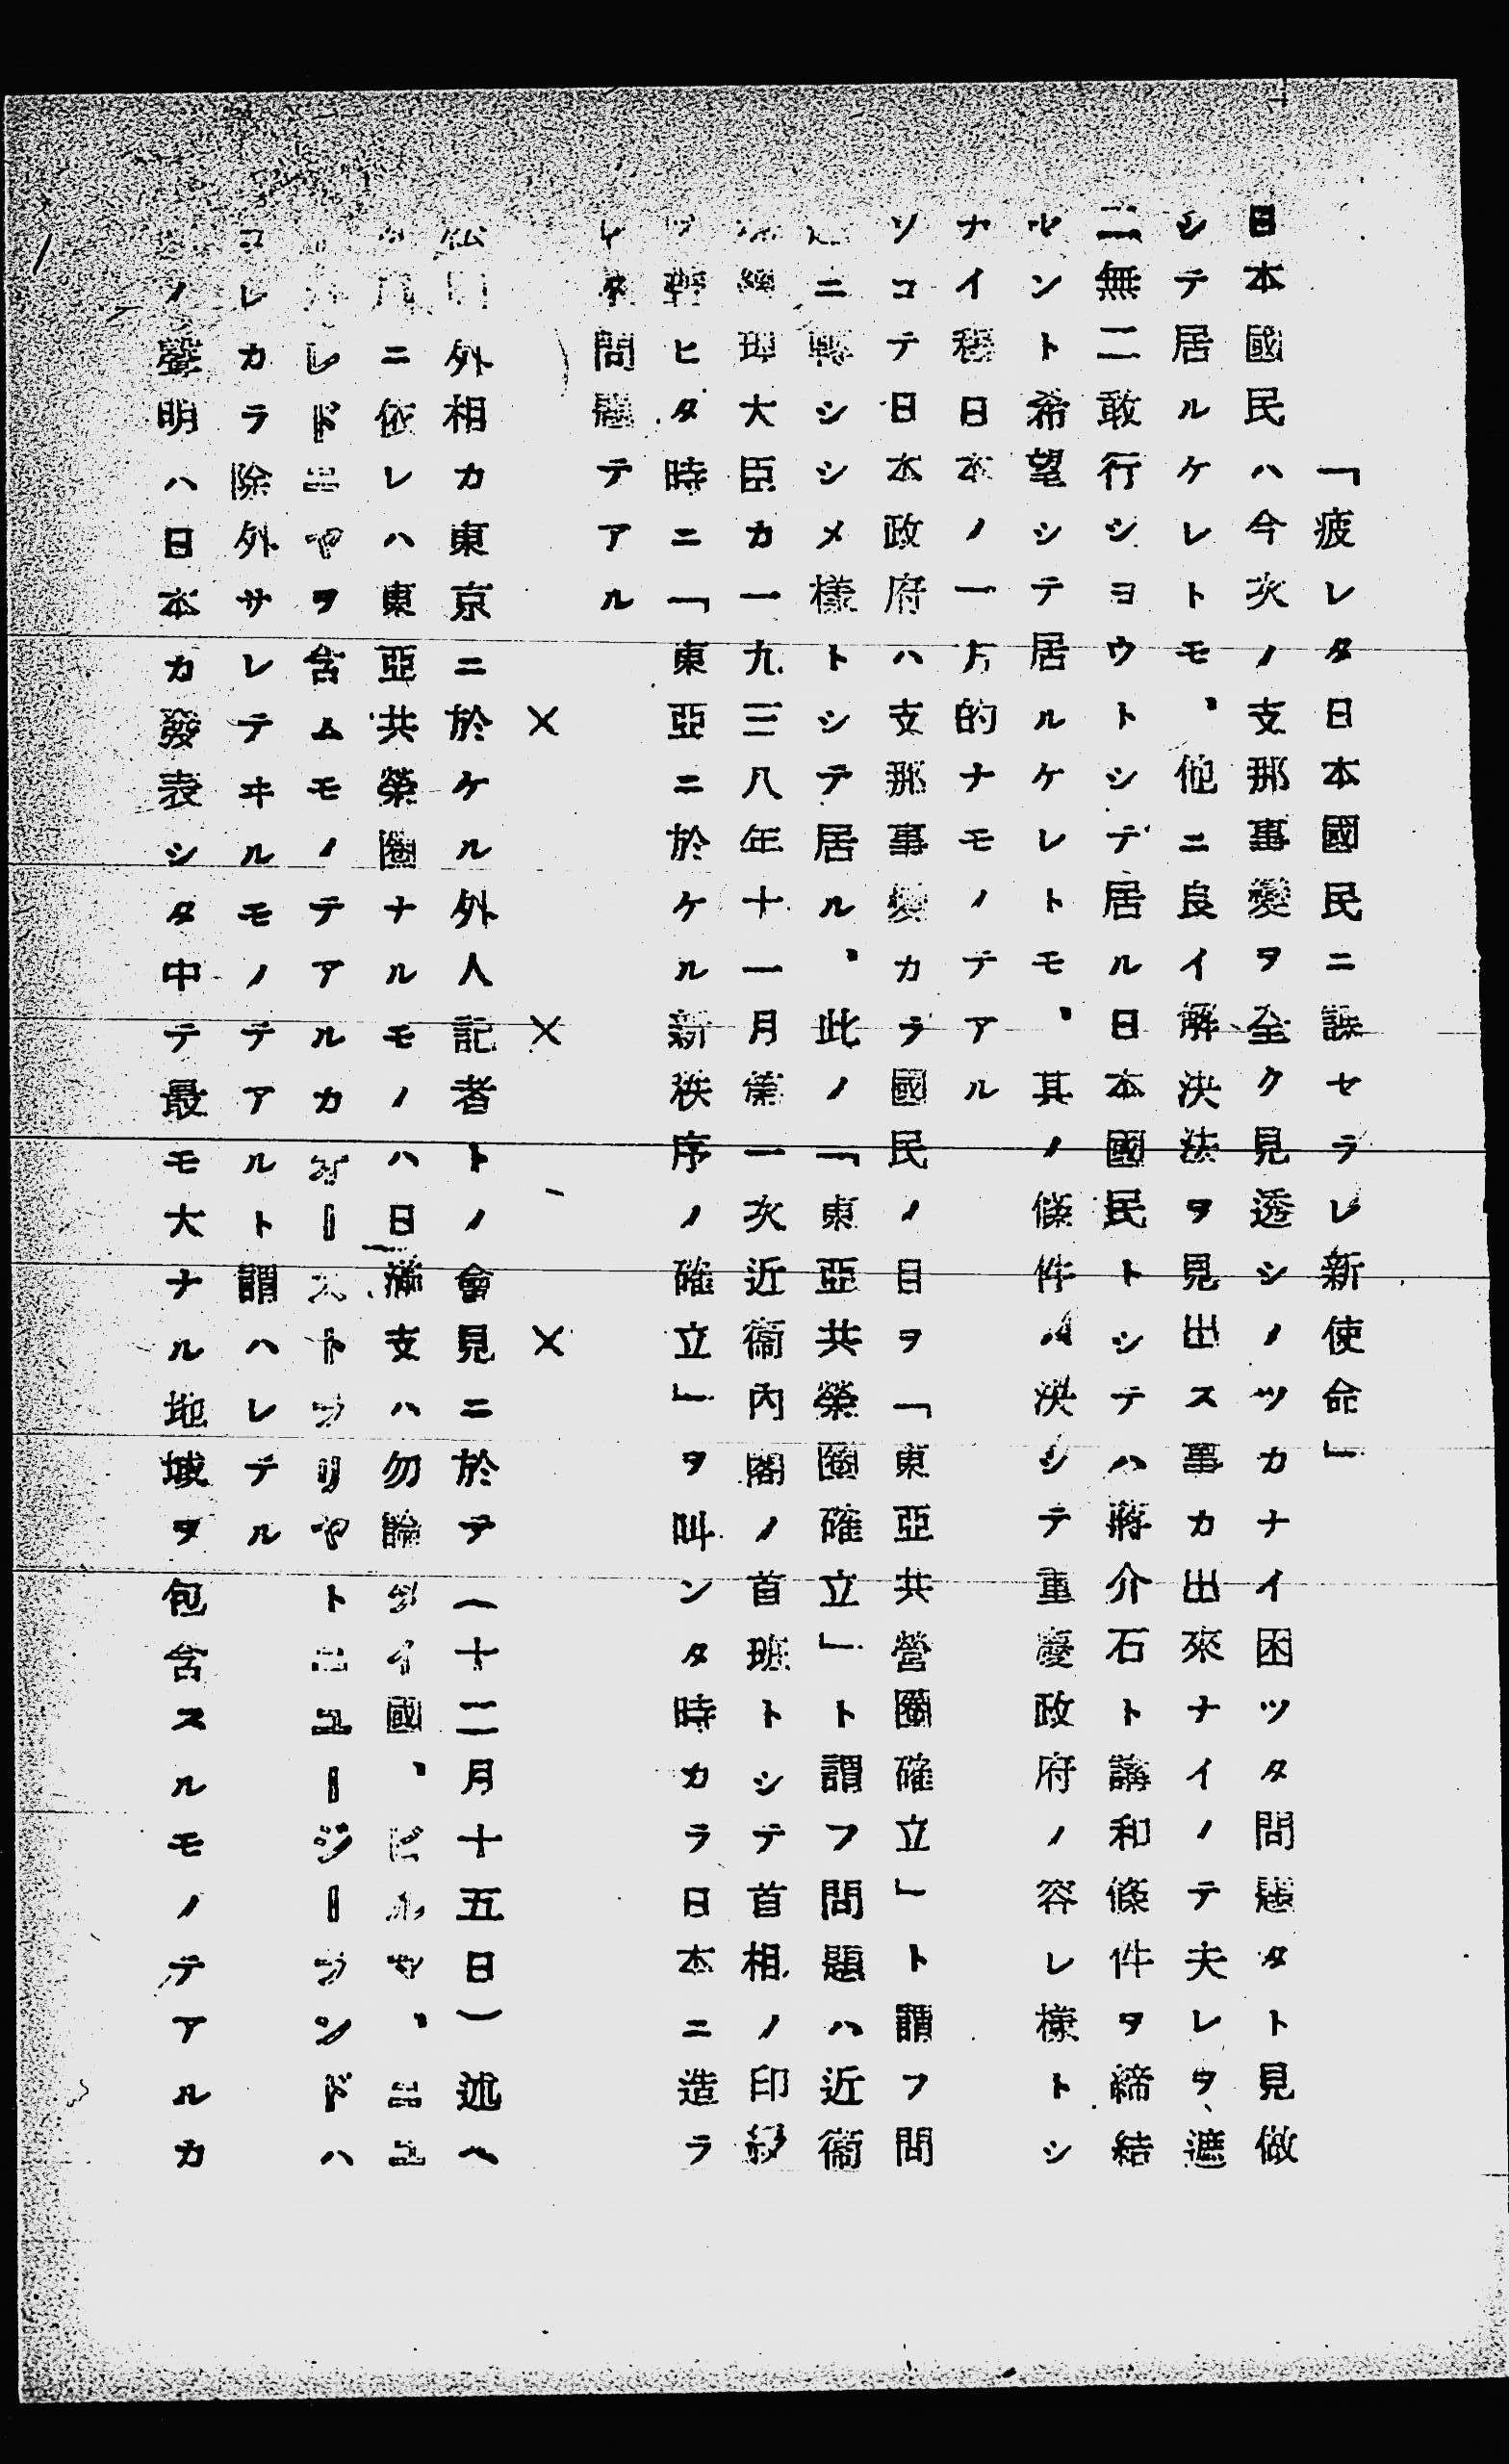 「疲レタ日本國民ニ課セラレ新使命」
日本國民ハ今次ノ支那事變ヲ全ク見透シノツカナイ困ツタ問題タト見做
シテ居ルケレトモ、他ニ良イ解決法ヲ見出ス事カ出來ナイノテ夫レヲ、遮
二無二敢行シヨウトシテ居ル日本國民トシテハ蔣介石ト講和條件ヲ締結
セント希望シテ居ルケレトモ、其ノ條件ハ決シテ重慶政府ノ容レ樣トシ
ナイ程日本ノ一方的ナモノテアル
ソコテ日本政府ハ支那事變カラ國民ノ目ヲ「東亞共營圈確立」ト謂フ問
ニ轉シシメ樣トシテ居ル、此ノ「東亞共榮圈確立」ト謂フ問題ハ近衞
總理大臣カ一九三八年十一月第一次近衞內閣ノ首班トシテ首相ノ印綬
ヒタ時ニ「東亞ニ於ケル新秩序ノ確立」ヲ叫ンタ時カラ日本ニ造ラ
レタ問題テアル
×××
松岡外相カ東京ニ於ケル外人記者トノ會見ニ於テ(十二月十五日)述ヘ
ニ依レハ東亞共榮圈ナルモノハ日滿支ハ勿論タイ國、ビルマ、ニユ
レドニヤヲ含ムモノテアルカオーストラリヤトニユージーランドハ
コレカラ除外サレテヰルモノテアルト謂ハレテル
ノ聲明ハ日本カ發表シタ中テ最モ大ナル地域ヲ包含スルモノテアルカ